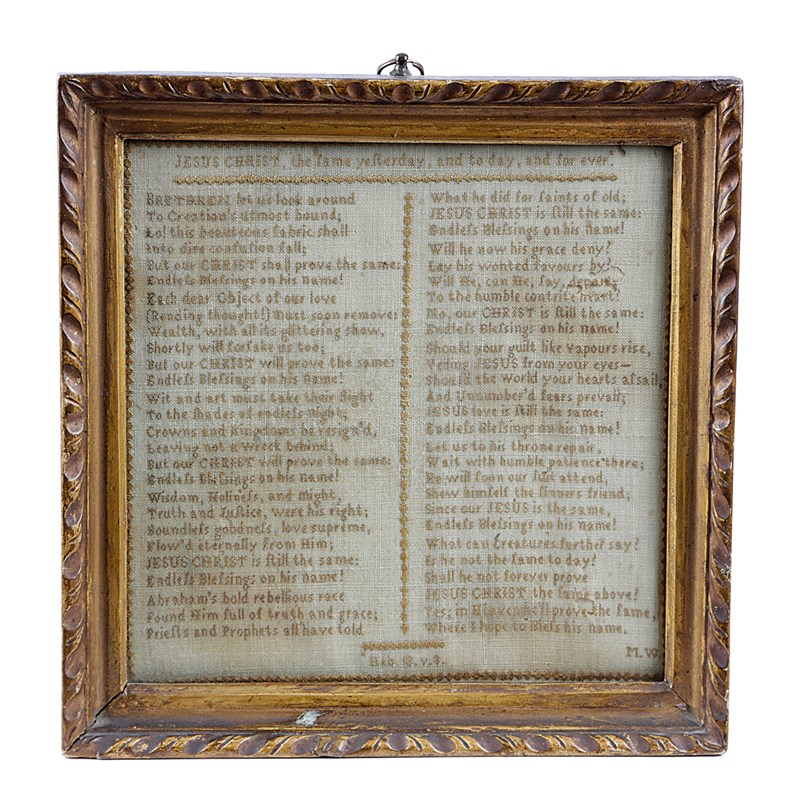 JESUS CHRIST, the ſame yeſterday, and to day, and for ever.
BRETHREN let us look around
To Creation's utmost bound;
Lo! this beauteous fabric shall
Into dire confuſion fall;
But our CHRIST shall prove the same:
Endleſs Bleſsings on his name!
Each dear Object of our love
(Rending thought!) must soon remove:
Wealth, with all its glittering show,
Shortly will forſake us too;
But our CHRIST will prove the same:
Endleſs Bleſsings on his name!
Wit and art must take their flight
To the ſhades of endleſs night;
Crowns and Kingdoms be reſign'd,
Leaving not a wreck behind;
But our CHRIST will prove the same:
Endleſs Bleſsings on his name!
Wisdom, Holineſs, and might,
Truth and Juſtice, were his right;
Boundleſs goodneſs, love supreme,
Flow'd eternally from Him;
JESUS CHRIST is ſtill the same:
Endleſs Bleſsings on his name!
Abraham's bold rebellious race
Found Him full of truth and grace;
Prieſts and Prophets all have told
What he did for ſaints of old;
JESUS CHRIST is ſtill the same:
Endleſs Bleſsings on his name!
Will he now his grace deny?
Lay his wonted favours by?
Will He, can He, ſay, depart,
To the humble contrite heart?
No, our CHRIST is ſtill the same:
Endleſs Bleſsings on his name!
Should your guilt like vapours rise,
Veiling JESUS from your eyes—
Should the world your hearts aſsail,
And Unnumber'd fears prevail;
JESUS love is ſtill the same:
Endleſs Bleſsings on his name!
Let us to his throne repair,
Wait with humble patience there;
He will ſoon our ſuit attend,
Shew himſelf the ſinners friend;
Since our JESUS is the same,
Endleſs Bleſsings on his name!
What can Creatures further say?
Is he not the ſame to day?
Shall he not forever prove
JESUS CHRIST the ſame above?
Yes; in Heaven he'll prove the ſame,
Where I hope to Bleſs his name.
M.W
Heb. 13. v. 8.